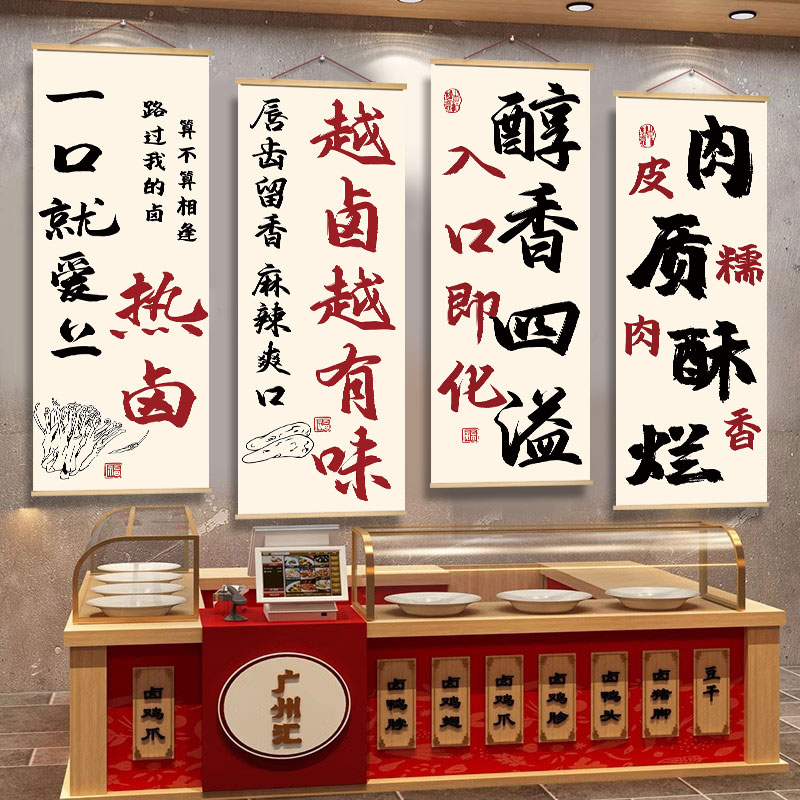 一口就爱上
路过我的卤
算不算相逢
热卤
越卤越有味
唇齿留香 麻辣爽口
醇香四溢
入口即化
肉质酥烂
皮糯肉香
卤鸡爪
广州汇
卤鸭脖
卤鸡翅
卤鸡爪
卤鸡胗
卤鸭头
卤猪脚
豆干